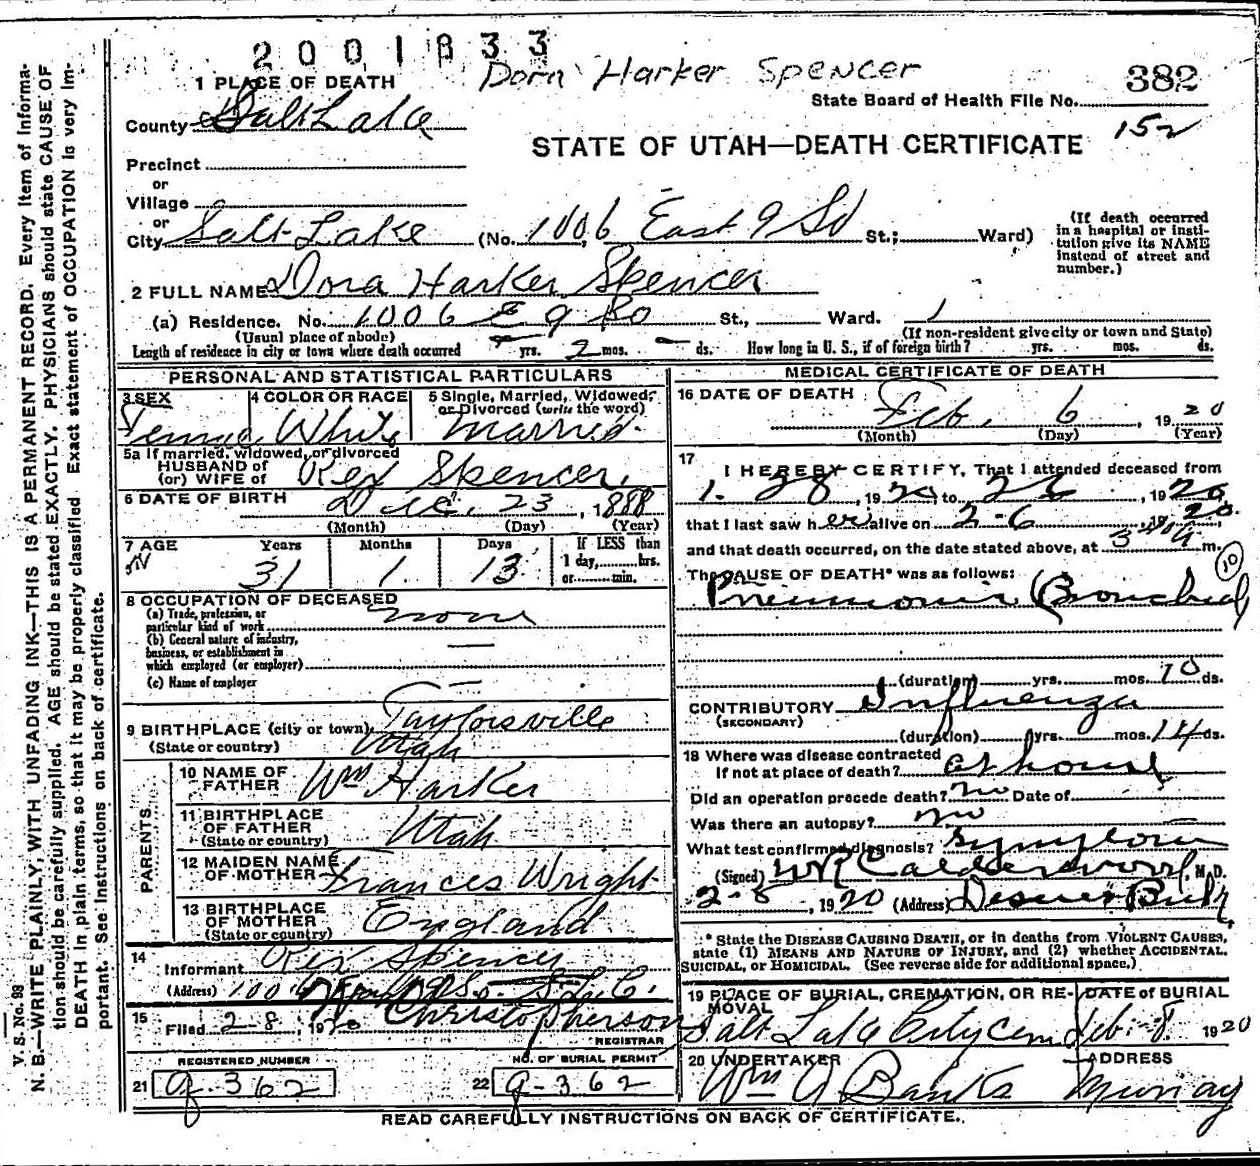 2001833
Dora Harker Spencer
382
State Board of Health File No.
152
STATE OF UTAH—DEATH CERTIFICATE
1 PLACE OF DEATH
County Salt Lake
Precinct
or
Village
or
City Salt Lake (No. 1006 East 9 So St.; Ward)
(If death occurred in a hospital or insti-
tution give its NAME
instead of street and
number.)
2 FULL NAME Dora Harker Spencer
(a) Residence. No. 1006 E 9 So St., Ward. 1
(Usual place of abode) (If non-resident give city or town and State)
Length of residence in city or town where death occurred yrs. 2 mos. ds. How long in U. S., if of foreign birth? yrs. mos. ds.
PERSONAL AND STATISTICAL PARTICULARS
3 SEX 4 COLOR OR RACE 5 Single, Married, Widowed, or Divorced (write the word)
Female White Married
5a If married, widowed, or divorced
HUSBAND of
(or) WIFE of Rex Spencer
6 DATE OF BIRTH Dec. 23, 1888
(Month) (Day) (Year)
7 AGE Years Months Days If LESS than
1 day, hrs.
or min.
31 1 13
8 OCCUPATION OF DECEASED
(a) Trade, profession, or
particular kind of work none
(b) General nature of industry,
business, or establishment in
which employed (or employer)
(c) Name of employer
9 BIRTHPLACE (city or town) Taylorsville
(State or country) Utah
PARENTS
10 NAME OF FATHER Wm Harker
11 BIRTHPLACE OF FATHER Utah
(State or country)
12 MAIDEN NAME OF MOTHER Frances Wright
13 BIRTHPLACE OF MOTHER England
(State or country)
14
Informant Rex Spencer
(Address) 1006 So. S.L.C.
15
Filed 2-8, 1920 Christopherson
REGISTRAR
REGISTERED NUMBER NO. OF BURIAL PERMIT
21 g-362 22 g-362
MEDICAL CERTIFICATE OF DEATH
16 DATE OF DEATH Feb. 6, 1920
(Month) (Day) (Year)
17
I HEREBY CERTIFY, That I attended deceased from
1. 28, 1920, to 2 6, 1920,
that I last saw her alive on 2-6 20.
and that death occurred, on the date stated above, at 3 m.
The CAUSE OF DEATH* was as follows: 10
Pneumonia (Bronchial)
(duration) yrs. mos. 10 ds.
CONTRIBUTORY Influenza
(SECONDARY)
(duration) yrs. mos. 14 ds.
18 Where was disease contracted
If not at place of death? at home
Did an operation precede death? no Date of
Was there an autopsy? no
What test confirmed diagnosis? Symptom
(Signed) W R Calderwood, M.D.
2-8, 1920 (Address) Deseret Bank
* State the DISEASE CAUSING DEATH, or in deaths from VIOLENT CAUSES,
state (1) MEANS AND NATURE OF INJURY, and (2) whether ACCIDENTAL,
SUICIDAL, or HOMICIDAL. (See reverse side for additional space.)
19 PLACE OF BURIAL, CREMATION, OR RE-MOVAL DATE of BURIAL
Salt Lake City Cem Feb. 8. 1920
20 UNDERTAKER ADDRESS
Wm A Banks Murray
READ CAREFULLY INSTRUCTIONS ON BACK OF CERTIFICATE.
V. S. No. 98
N. B.—WRITE PLAINLY, WITH UNFADING INK—THIS IS A PERMANENT RECORD. Every item of informa-
tion should be carefully supplied. AGE should be stated EXACTLY. PHYSICIANS should state CAUSE OF
DEATH in plain terms, so that it may be properly classified. Exact statement of OCCUPATION is very im-
portant. See instructions on back of certificate.